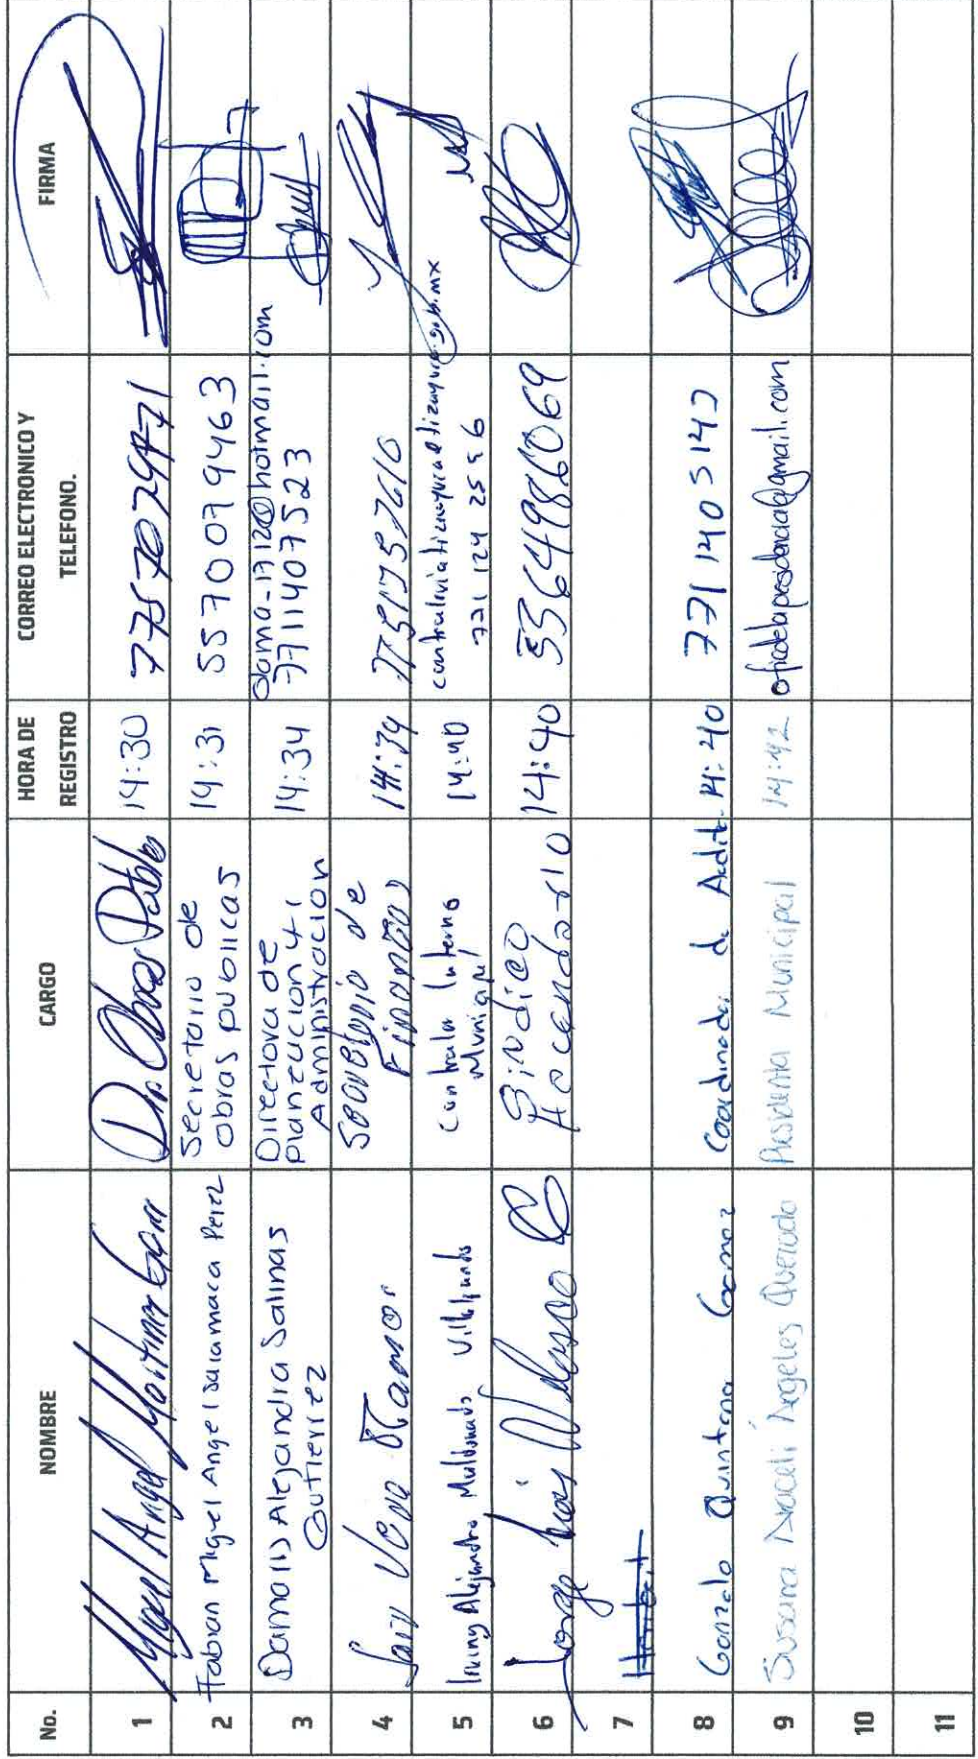 No. NOMBRE CARGO HORA DE REGISTRO CORREO ELECTRONICO Y TELEFONO. FIRMA
1 Miguel Angel Martinez Dir. Obras 14:30
2 Fabian Miguel Angel Salamaca Perez Secretario de obras publicas 14:31 5570079463
3 Damaris Alejandra Salinas Gutierrez Directora de planeacion y Administracion 14:34 7711407523
4 Vera Ramos de Finanzas 14:34
5 Irving Alejandro Maldonado Villalpando Contralor Interno Municipal 14:40 771 124 25 96
6 Jorge Luis Velasco Sindico Hacendario 14:40 5564986069
7
8 Gonzalo Quintana Gomez Coordinador de Audit. 14:40 7711405142
9 Susana Araceli Ángeles Quezada Presidenta Municipal 14:42 oficdelapresidencia@gmail.com
10
11